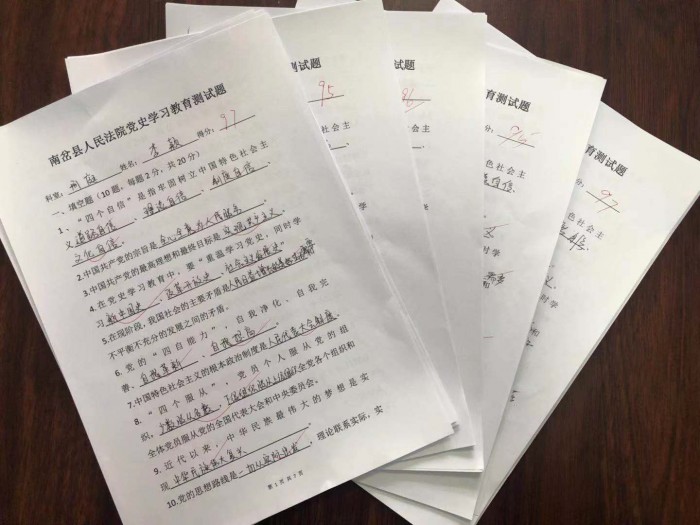 南岔县人民法院党史学习教育测试题
科室：刑庭 姓名：李毅 得分：97
一、填空题（10题，每题2分，共20分）
1、“四个自信”是指牢固树立中国特色社会主
义道路自信、理论自信、制度自信、
文化自信。
2.中国共产党的宗旨是全心全意为人民服务。
3.中国共产党的最高理想和最终目标是实现共产主义。
4.在党史学习教育中，要“重温学习党史，同时学
习新中国史、改革开放史、社会主义发展史”
5.在现阶段，我国社会的主要矛盾是人民日益增长的美好生活需要
不平衡不充分的发展之间的矛盾。
6.党的“四自能力”，自我净化、自我完
善、自我革新、自我提高。
7.中国特色社会主义的根本政治制度是人民代表大会制度。
8.“四个服从”，党员个人服从党的组
织，少数服从多数，下级组织服从上级组织，全党各个组织和
全体党员服从党的全国代表大会和中央委员会。
9.近代以来，中华民族最伟大的梦想是实
现中华民族伟大复兴
10.党的思想路线是一切从实际出发，理论联系实际，实
第1页共7页
测试题
95
教育测试题
96
会主
学
育测试题
分：
会主
自信
义
学
教育测试题
分：97
色社会主
义
时学